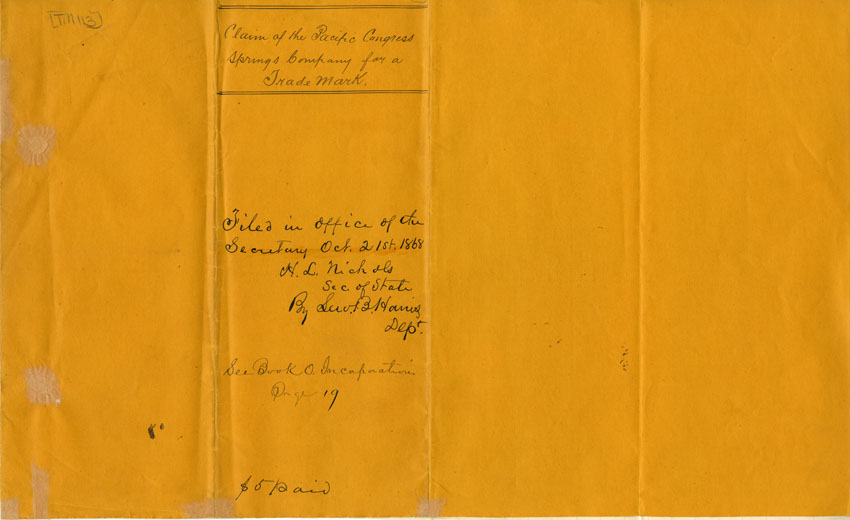 [TM 113]
Claim of the Pacific Congress
Springs Company for a
Trade Mark.
Filed in office of the
Secretary Oct. 21st. 1868
H. L. Nichols
Sec of State
By Lew. B. Harris
Dept.
See Book O. Incorporations
Page 19
$5 Paid